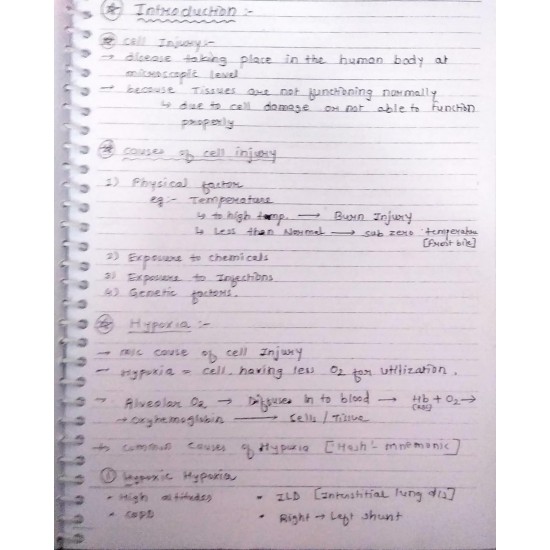 Introduction :-
Cell Injury:-
→ disease taking place in the human body at
microscopic level
→ because Tissues are not functioning normally
↳ due to cell damage or not able to function
properly
Causes of cell injury
1) Physical factor
eg:- Temperature
↳ to high temp. → Burn Injury
↳ Less than Normal → sub zero temperature
[Frost bite]
2) Exposure to chemicals
3) Exposure to Infections
4) Genetic factors.
Hypoxia :-
→ m/c cause of cell Injury
→ Hypoxia = cell having less O2 for utilization.
→ Alveolar O2 → Diffuses In to blood → Hb + O2 →
(RBC)
→ Oxyhemoglobin → Cells / Tissue
→ Common Causes of Hypoxia [Hash - mnemonic]
① Hypoxic Hypoxia
• High altitudes • ILD [Interstitial lung dis]
• COPD • Right → Left shunt